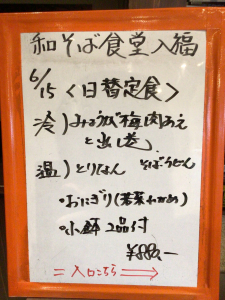 和そば食堂入福
6/15 <日替定食>
冷)みょうが梅肉あえ
と出し巻
温)とりなん そばうどん
・おにぎり(若菜わかめ)
・小鉢2品付
¥880,-
=入口こちら⇒